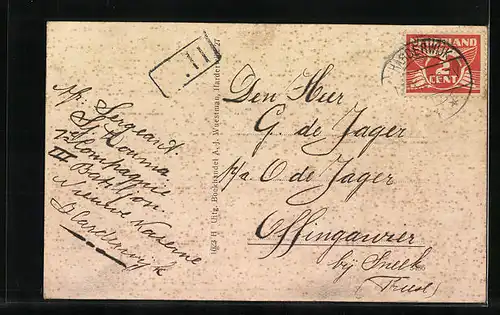 .11
NEDERLAND
2
CENT
HARDERWIJK
Afz. Sergeant
S. Douma
2e Compagnie
III Bataljon
Nieuwe Kazerne
Harderwijk
1023 H Uitg. Boekhandel A. J. Wuestman, Harderwijk
Den Heer
G. de Jager
p/a O de Jager
Offingawier
bij Sneek
(Friesl)